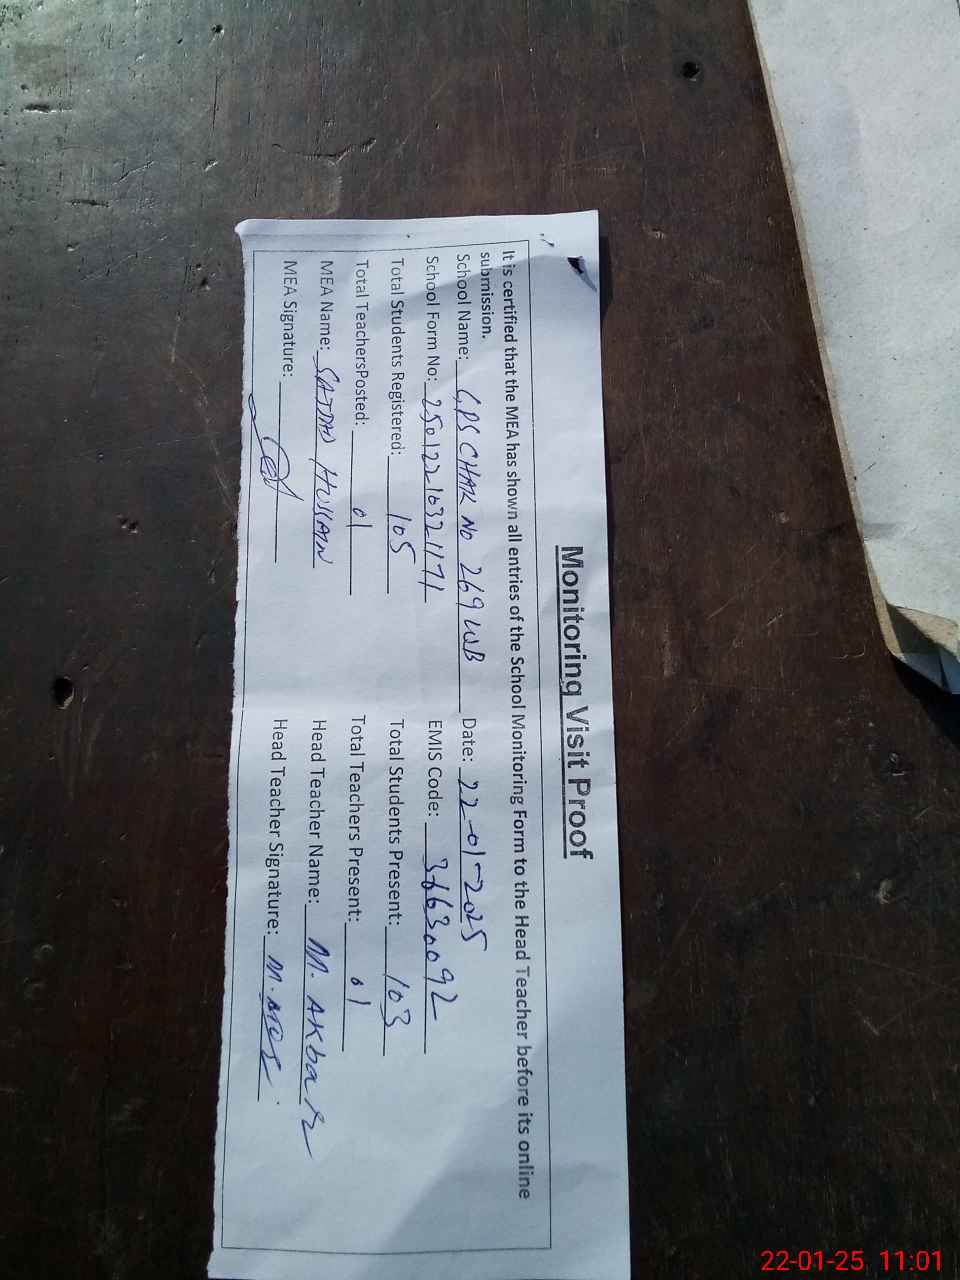 Monitoring Visit Proof
It is certified that the MEA has shown all entries of the School Monitoring Form to the Head Teacher before its online
submission.
School Name: G.P.S CHAK No 269 WB Date: 22-01-2025
School Form No: 25012210321171 EMIS Code: 36630092
Total Students Registered: 105 Total Students Present: 103
Total TeachersPosted: 01 Total Teachers Present: 01
MEA Name: SAJJAD HUSSAIN Head Teacher Name: M. AKbar
MEA Signature: Head Teacher Signature:
22-01-25 11:01